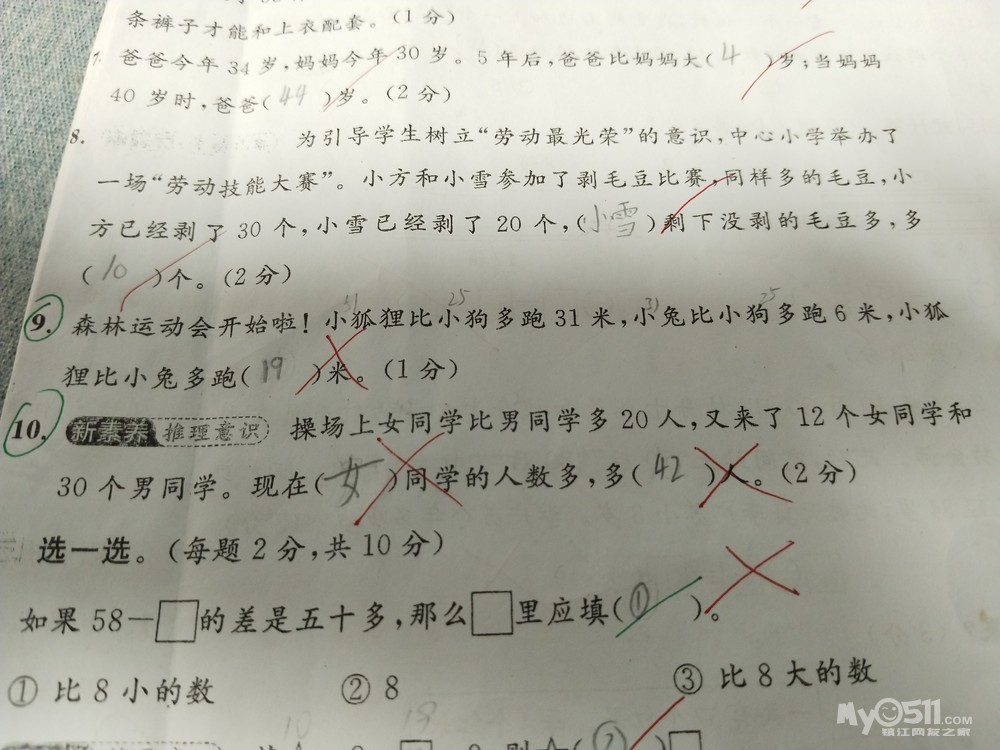 条裤子才能和上衣配套。(1分)
7. 爸爸今年34岁,妈妈今年30岁。5年后,爸爸比妈妈大( 4 )岁;当妈妈
40岁时,爸爸( 44 )岁。(2分)
8. 为引导学生树立“劳动最光荣”的意识,中心小学举办了
一场“劳动技能大赛”。小方和小雪参加了剥毛豆比赛,同样多的毛豆,小
方已经剥了30个,小雪已经剥了20个,( 小雪 )剩下没剥的毛豆多,多
( 10 )个。(2分)
25 31 25
9. 森林运动会开始啦!小狐狸比小狗多跑31米,小兔比小狗多跑6米,小狐
狸比小兔多跑( 19 )米。(1分)
10. 新素养 推理意识 操场上女同学比男同学多20人,又来了12个女同学和
30个男同学。现在( 女 )同学的人数多,多( 42 )人。(2分)
选一选。(每题2分,共10分)
如果58-□的差是五十多,那么□里应填( ① )。
① 比8小的数 ② 8 ③ 比8大的数
10 18
My0511.COM
镇江网友之家